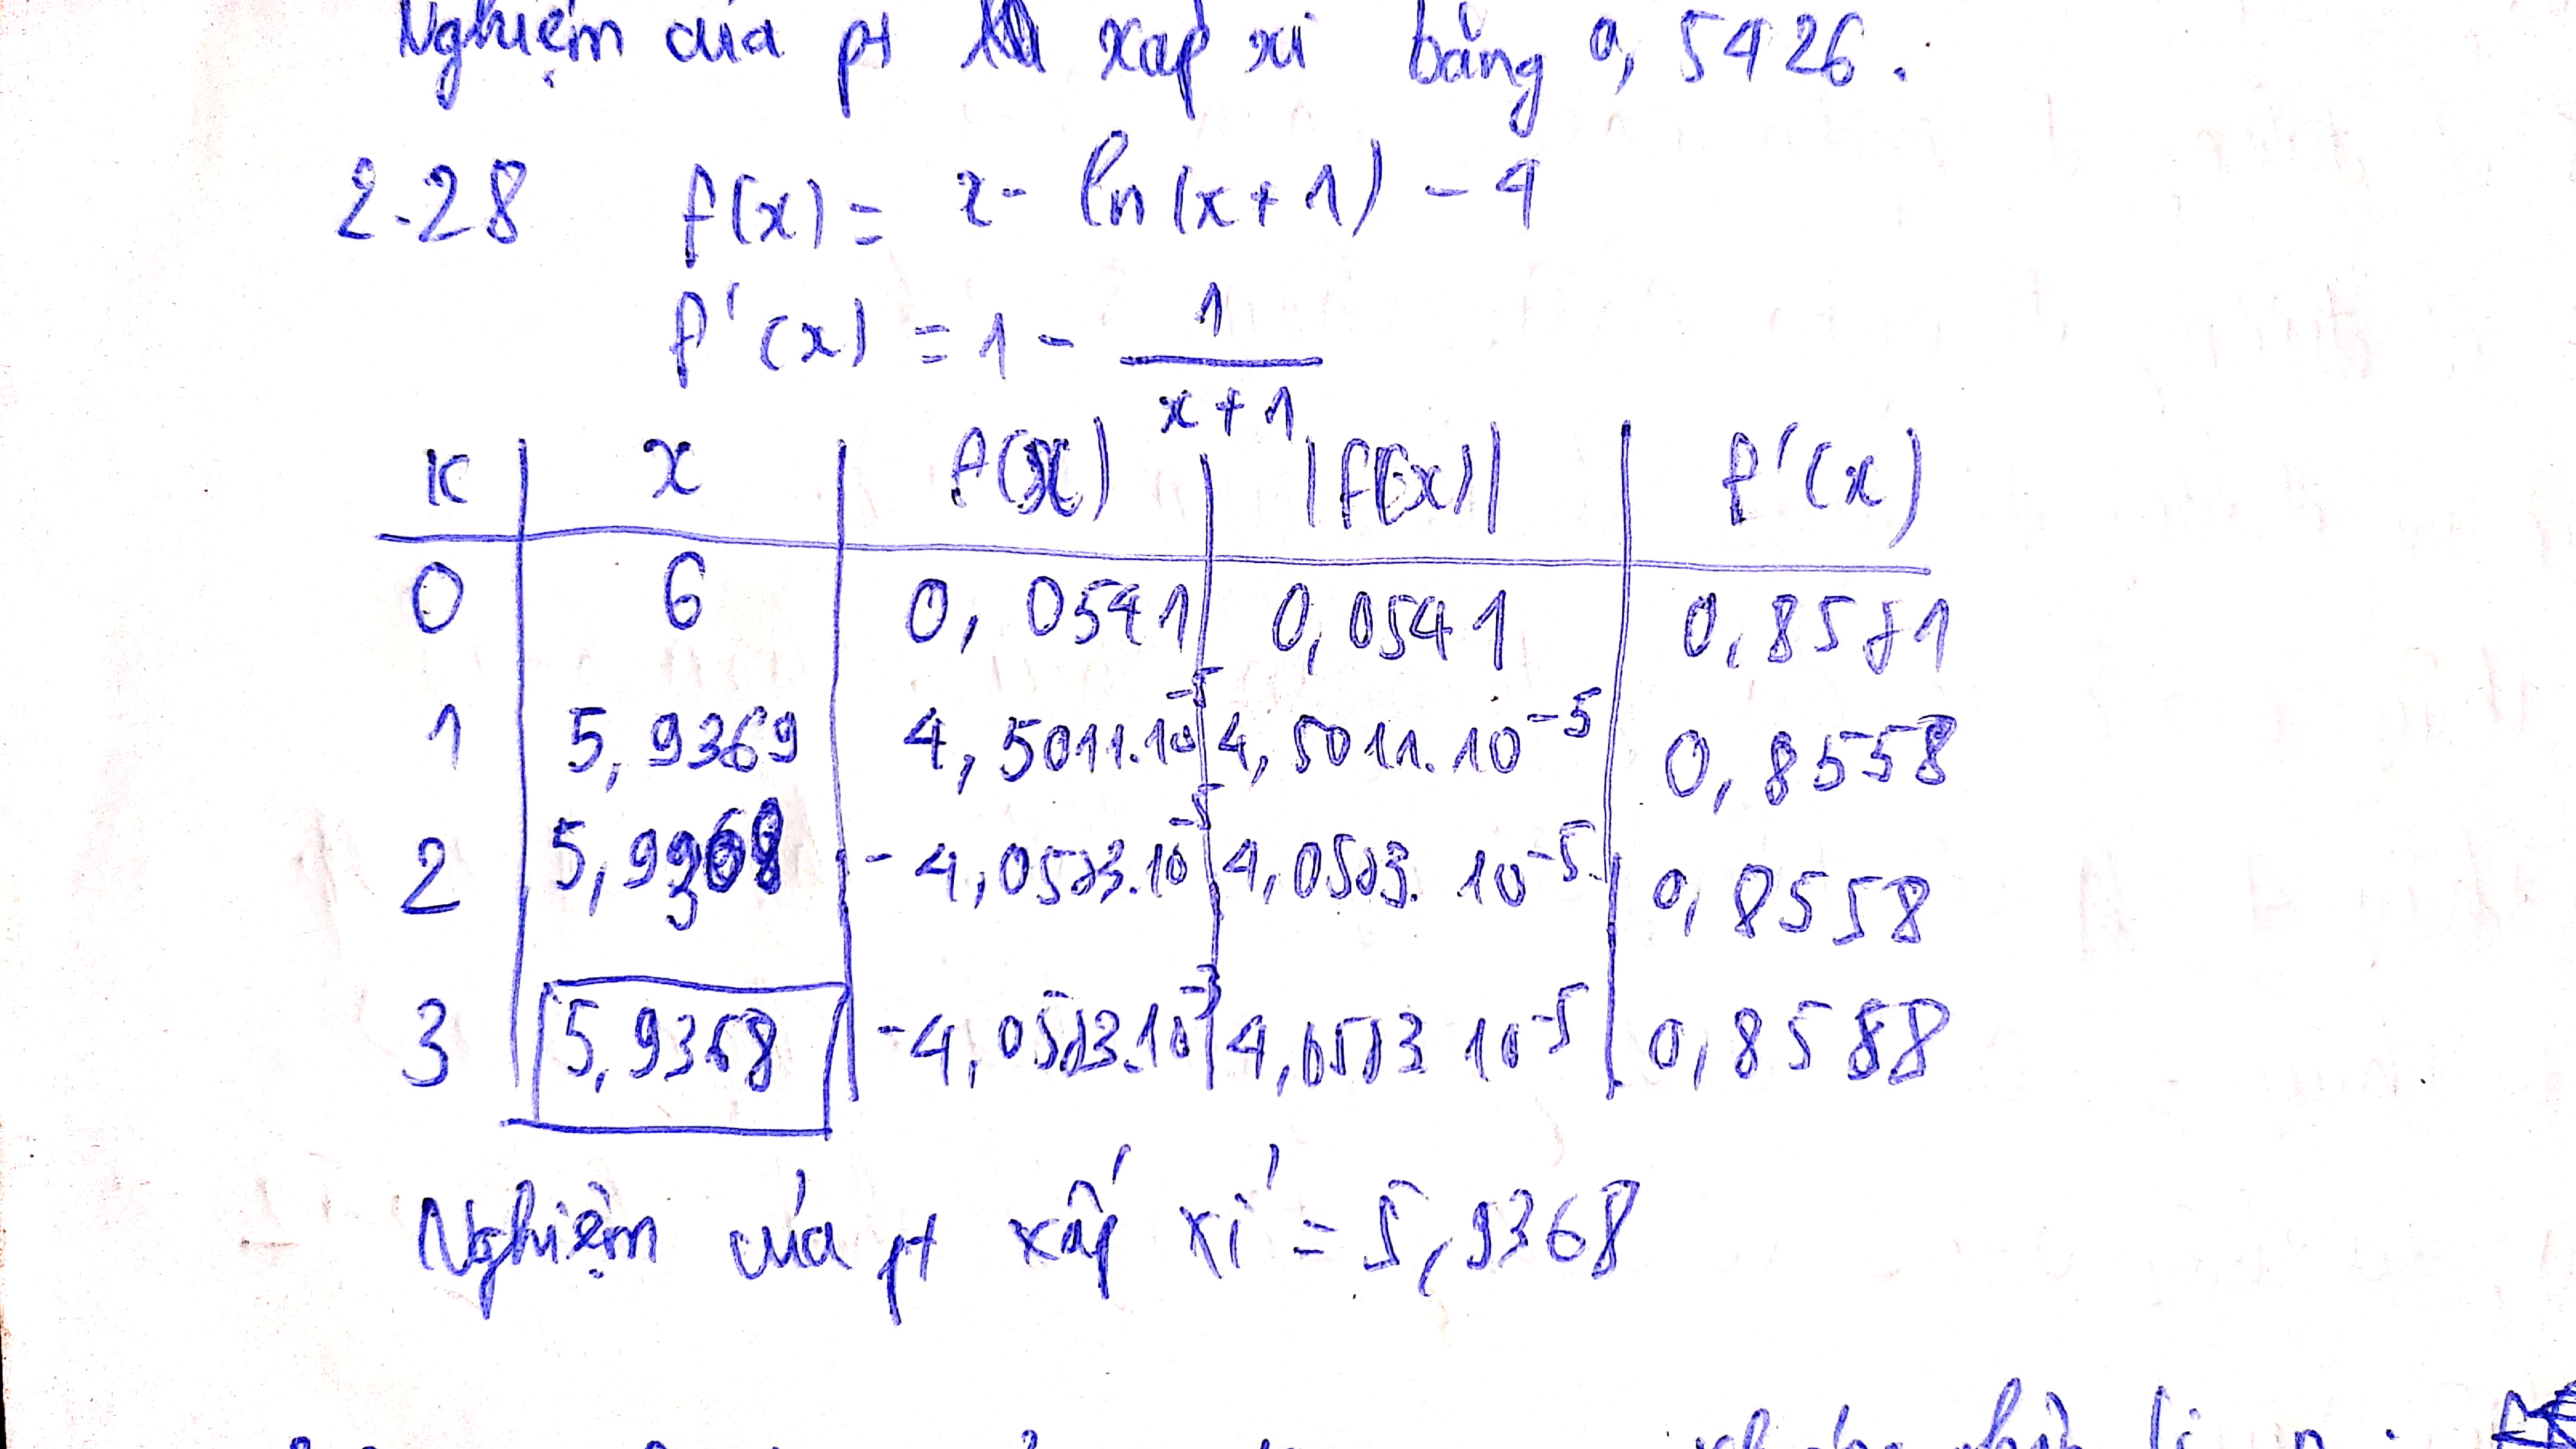 Nghiệm của pt xấp xỉ bằng 0,5426.
2.28 f(x) = x - ln(x+1) - 4
f'(x) = 1 - 1/(x+1)
K | x | f(x) | |f(x)| | f'(x)
0 | 6 | 0,0541 | 0,0541 | 0,8571
1 | 5,9369 | 4,5011.10^-5 | 4,5011.10^-5 | 0,8558
2 | 5,9368 | -4,0573.10^-5 | 4,0573.10^-5 | 0,8558
3 | 5,9368 | -4,0573.10^-5 | 4,0573 10^-5 | 0,8558
Nghiệm của pt xấp xỉ = 5,9368